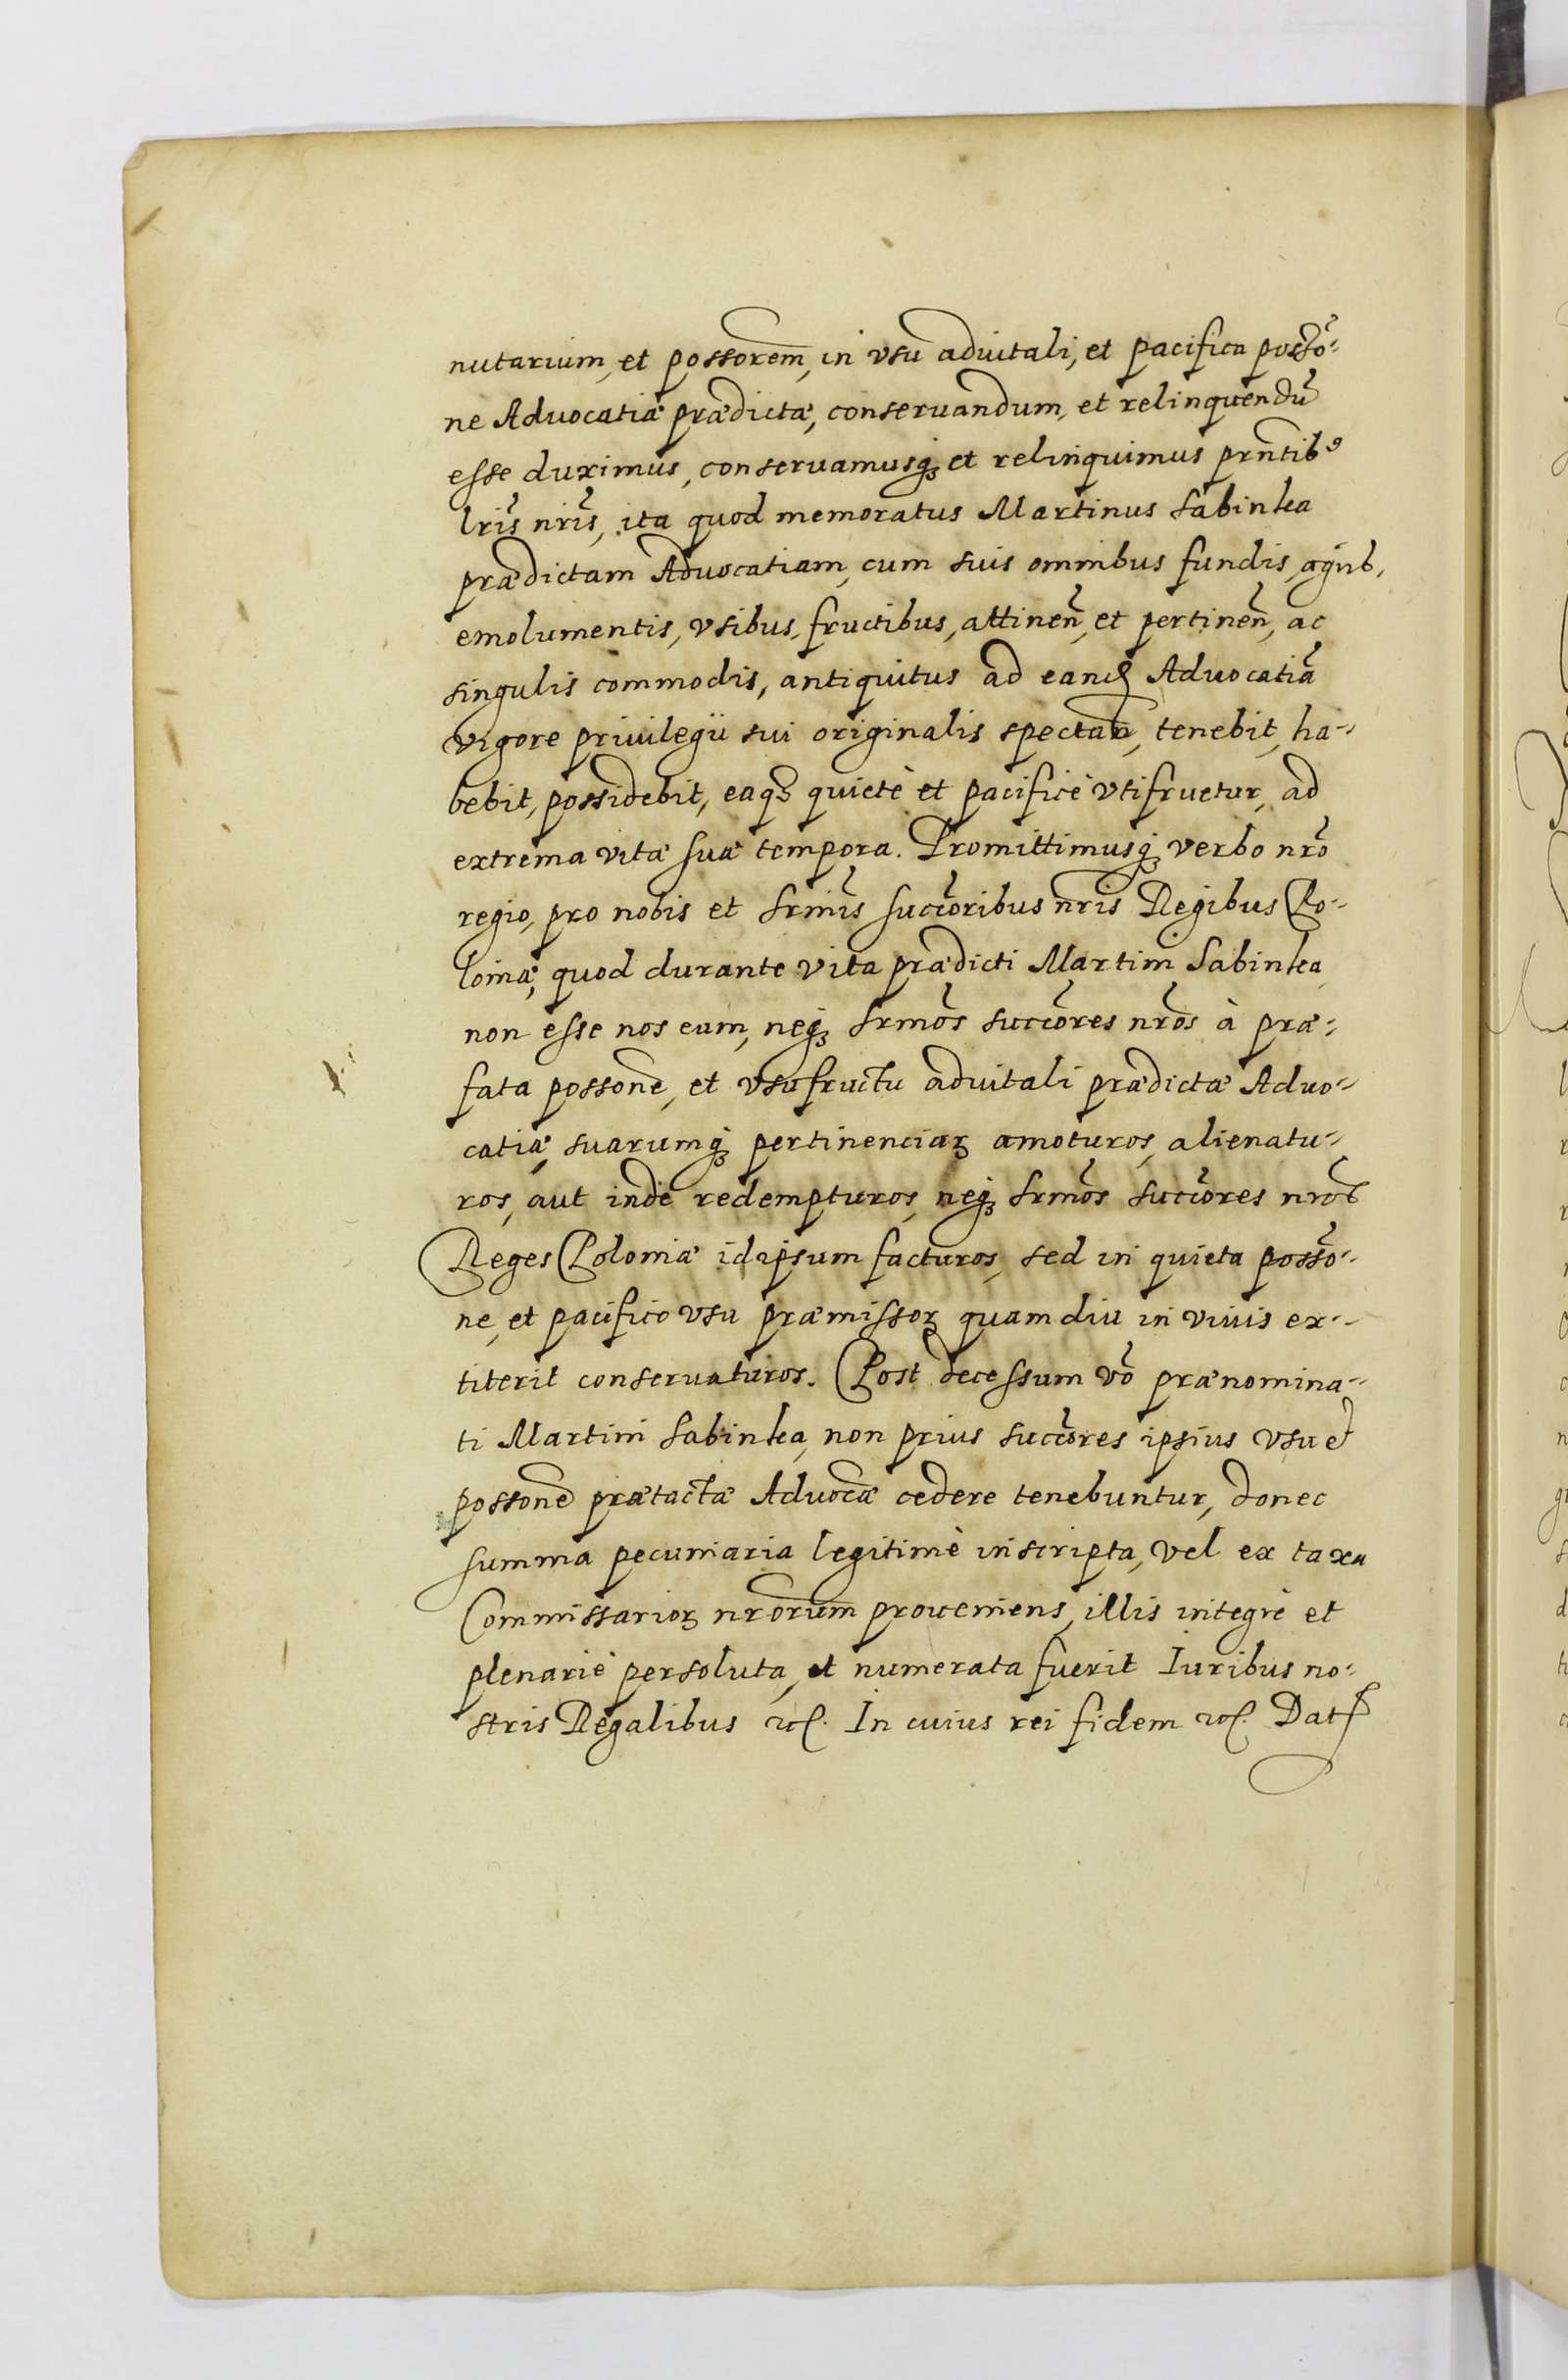 nutarium, et possorem, in vsu aduitali, et pacifica possõ-
ne Aduocatiæ prædictæ, conseruandum, et relinquendũ
esse duximus, conseruamusq₃ et relinquimus prñtibꝰ
lris̃ nris̃, ita quod memoratus Martinus Sabinka
prædictam Aduocatiam, cum suis omnibus fundis, agris,
emolumentis, vsibus, fructibus, attineñ, et pertineñ, ac
singulis commodis, antiquitus ad eand Aduocatiã
vigore priuilegii sui originalis spectañ, tenebit, ha-
bebit, possidebit, eaq₃ quietè et pacificè vtifruetur, ad
extrema vitæ suæ tempora. Promittimusq₃ verbo nrõ
regio, pro nobis et Srmis̃ succõribus nr̃is Regibus Po-
loniæ, quod durante vita prædicti Martini Sabinka
non esse nos eum, neq₃ Srmõs succõres nrõs à præ-
fata possone, et vsufructu aduitali prædictæ Aduo-
catiæ, suarumq₃ pertinenciaꝝ amoturos, alienatu-
ros, aut inde redempturos, neq₃ Srmõs succõres nrõs
Reges Poloniæ idipsum facturos, sed in quieta possõ-
ne, et pacifico vsu præmissoꝝ quamdiu in viuis ex-
titerit conseruaturos. Post decessum võ prænomina-
ti Martini Sabinka, non prius succõres ipsius vsu et
possone prætactæ Aduocæ cedere tenebuntur, donec
summa pecuniaria legitimè inscripta, vel ex taxa
Commissarioꝝ nrorum proueniens, illis integrè et
plenariè persoluta, et numerata fuerit Iuribus no-
stris Regalibus etc. In cuius rei fidem etc. Dat